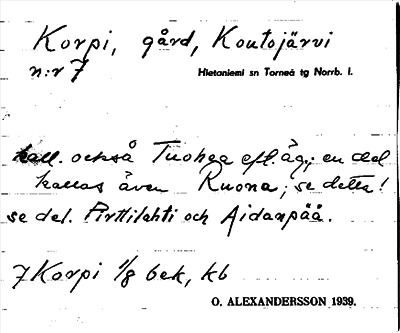 Korpi, gård, Koutojärvi
n:r 7 Hietaniemi sn Torneå tg Norrb. l.
kall. också Tuohea eft. äg.; en del
kallas även Ruona; se detta!
se del. Pirttilahti och Aidanpää.
7 Korpi 1/8 bek, kb
O. ALEXANDERSSON 1939.